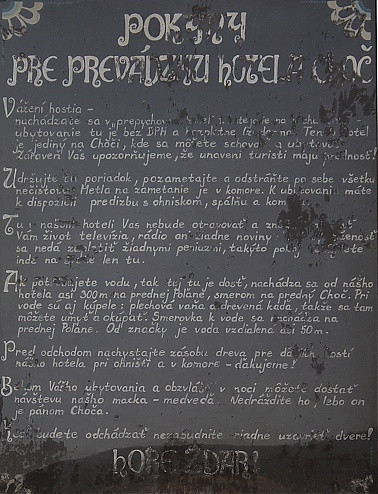 POKYNY
PRE PREVÁDZKU HOTELA CHOČ
Vážení hostia –
nachádzate sa v „prepychovom hoteli"
ubytovanie tu je bez DPH a Tento hotel
je jediný na Choči, kde sa môžete schovať a ubytovať.
Zároveň Vás upozorňujeme, že unavení turisti majú prednosť!
Udržujte tu poriadok, pozametajte a odstráňte po sebe všetku
nečistotu. Metla na zametanie je v komore. K ubytovaniu máte
k dispozícii predizbu s ohniskom, spálňu a komoru.
Tu v našom hoteli Vás nebude otravovať a
Vám život televízia, rádio ani žiadne noviny.
sa nedá zaplatiť žiadnymi peniazmi, takýto pokoj
inde na svete len tu.
Ak potrebujete vodu, tak tej tu je dosť, nachádza sa od nášho
hotela asi 300 m na prednej Poľane, smerom na predný Choč. Pri
vode sú aj kúpele: plechová vaňa a drevená kaďa, takže sa tam
môžete umyť a okúpať. Smerovka k vode sa nachádza na
prednej Poľane. Od značky je voda vzdialená asi 50 m.
Pred odchodom nachystajte zásobu dreva pre ďalších hostí
nášho hotela pri ohništi a v komore – ďakujeme!
Behom Vášho ubytovania a obzvlášť v noci môžete dostať
návštevu nášho macka – medveďa. Nedráždite ho, lebo on
je pánom Choča.
Keď budete odchádzať nezabudnite riadne uzavrieť dvere!
HORE ZDAR!